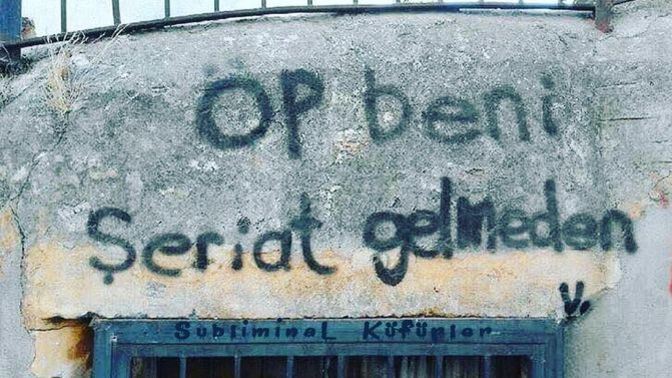 ÖP beni
Şeriat gelmeden
v.
Subliminal Küfürler